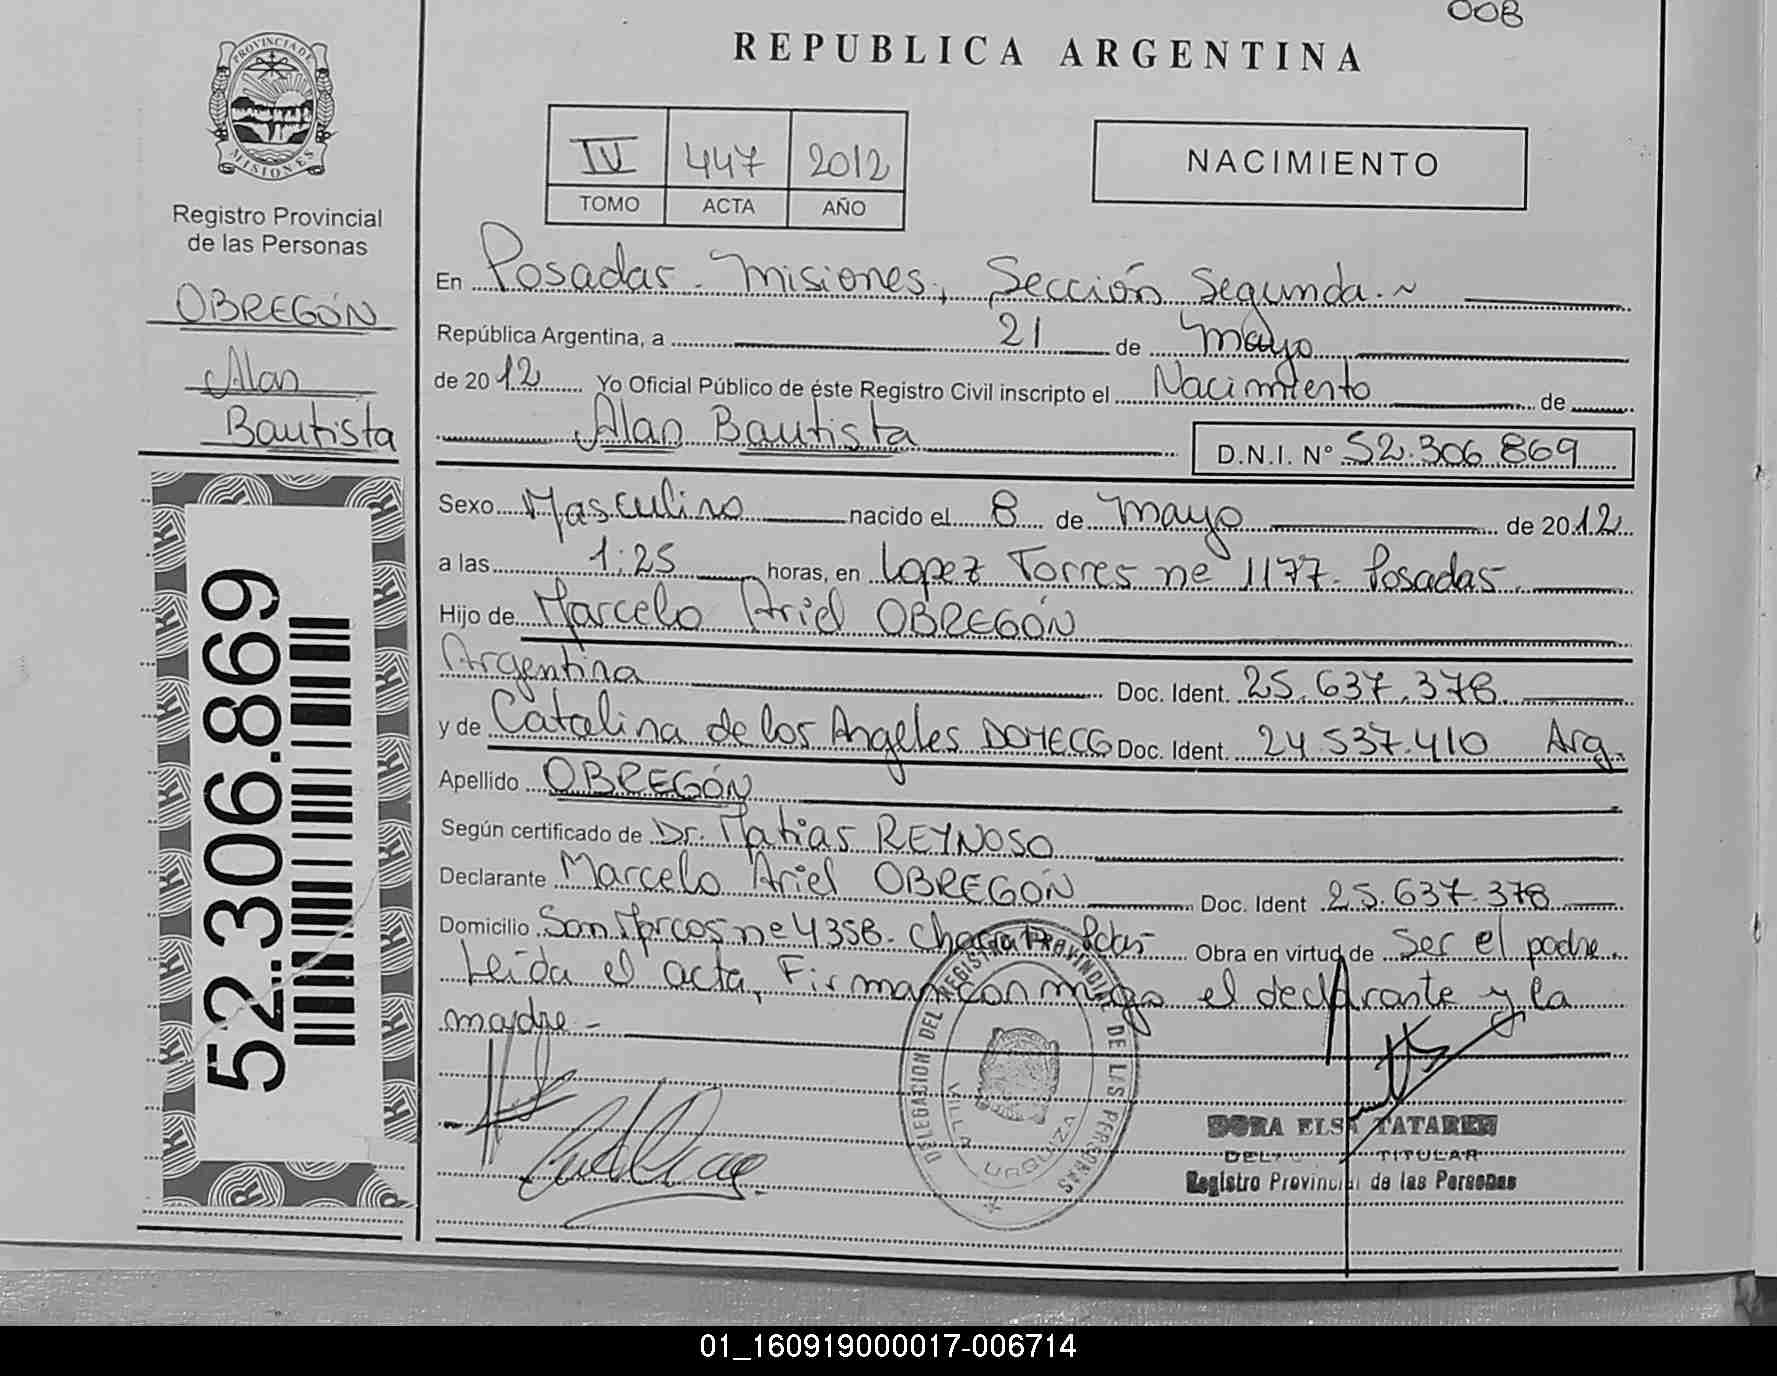 008
REPUBLICA ARGENTINA
PROVINCIA DE
MISIONES
IV 447 2012
TOMO ACTA AÑO
NACIMIENTO
Registro Provincial
de las Personas
OBREGÓN
Alan
Bautista
52.306.869
En Posadas - Misiones, Sección Segunda.~
República Argentina, a 21 de Mayo
de 2012 Yo Oficial Público de éste Registro Civil inscripto el Nacimiento de
Alan Bautista D.N.I. N° 52.306.869
Sexo Masculino nacido el 8 de Mayo de 2012
a las 1:25 horas, en Lopez Torres nº 1177. Posadas
Hijo de Marcelo Ariel OBREGÓN
Argentina Doc. Ident. 25.637.378
y de Catalina de los Angeles DOMECG Doc. Ident. 24.537.410 Arg.
Apellido OBREGÓN
Según certificado de Dr. Matias REYNOSO
Declarante Marcelo Ariel OBREGÓN Doc. Ident 25.637.378
Domicilio San Marcos nº 4358. Pdas Obra en virtud de Ser el padre
Leída el acta, Firman conmigo el declarante y la
madre -
DELEGACION DEL REGISTRO PROVINCIAL DE LAS PERSONAS
VILLA URQUIZA
DORA ELSA
TITULAR
Registro Provincial de las Personas
01_160919000017-006714